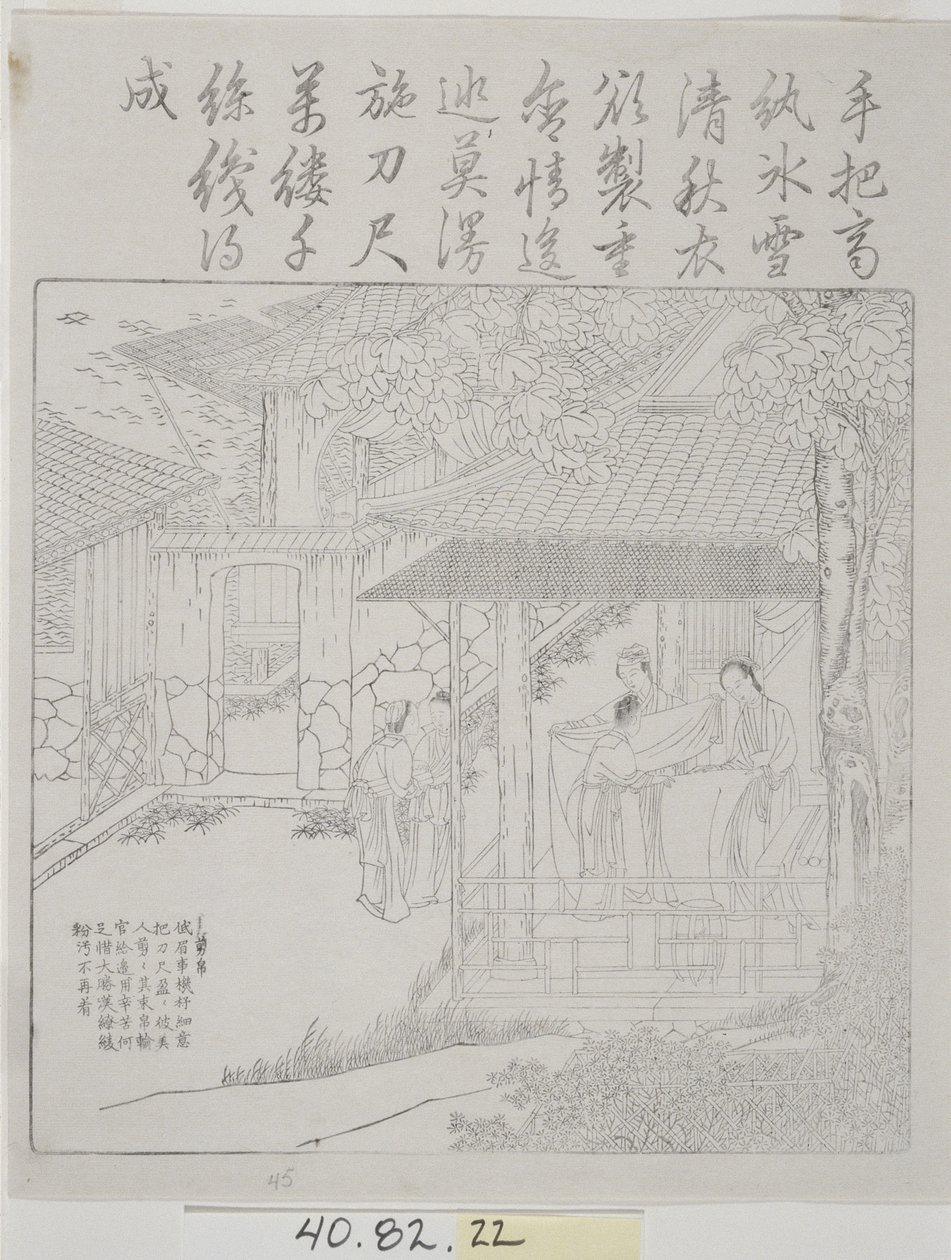 手把齊
紈冰雪
清秋衣
欲製重
含情逡
巡莫漫
施刀尺
萬縷千
絲織得
成
剪帛
低眉事機杼細意
把刀尺盈〻彼美
人剪〻其束帛輸
官給邊用辛苦何
足惜大勝漢繚綾
粉汚不再着
45
40.82.22